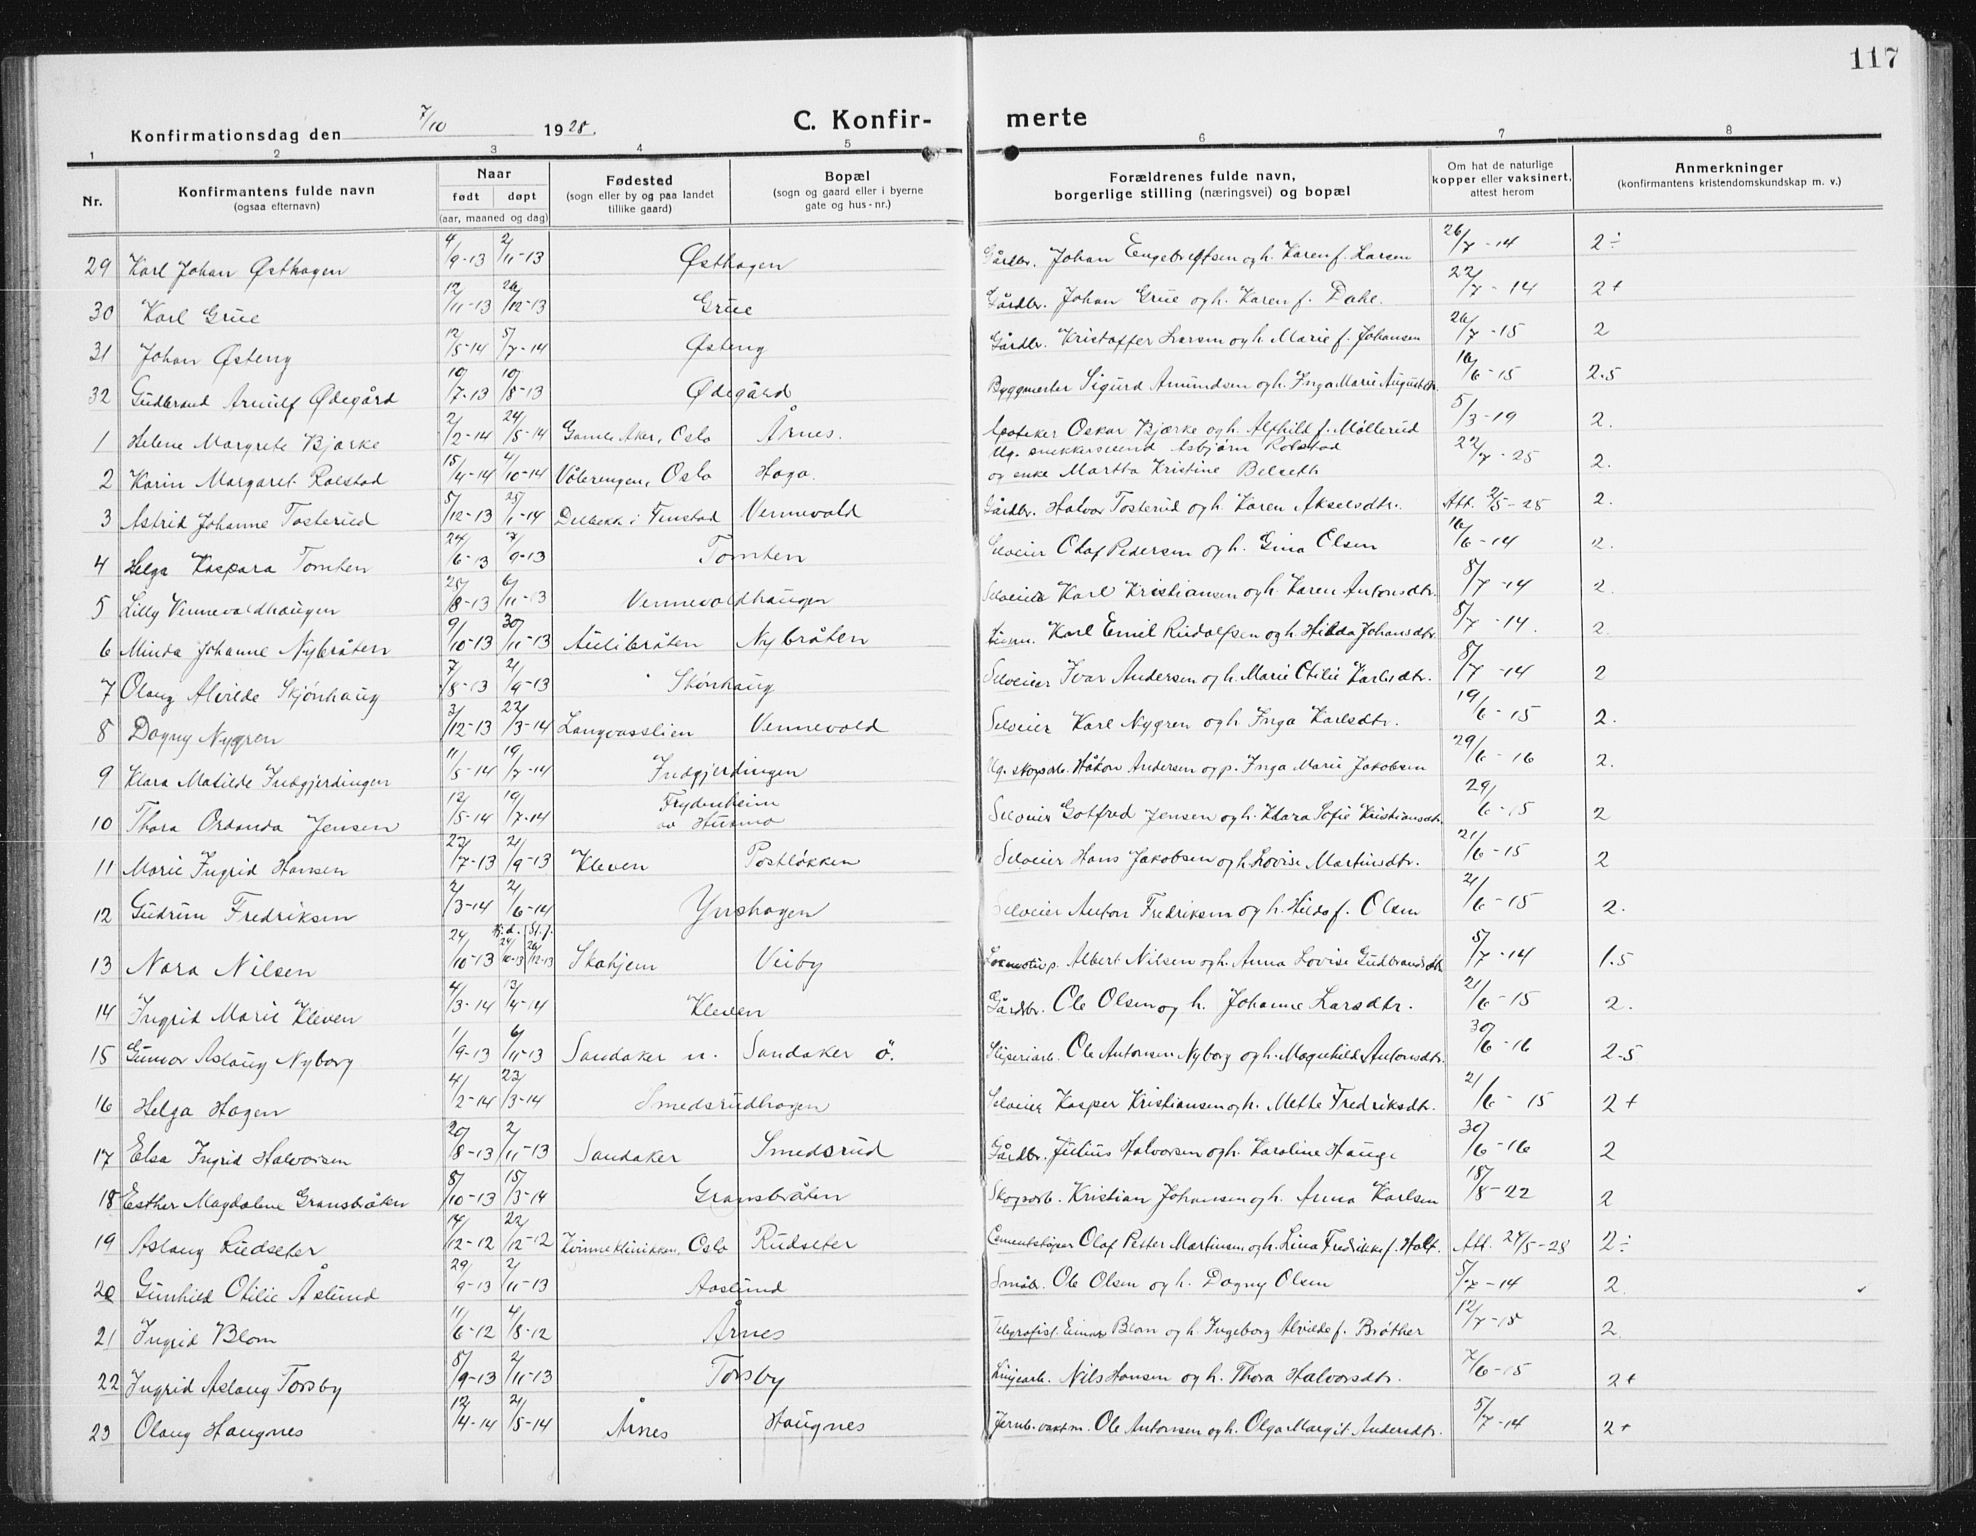 117
C. Konfir- merte
Konfirmationsdag den 7/10 1928.
1 2 3 4 5 6 7 8
Nr. Konfirmantens fulde navn (ogsaa efternavn) Naar født døpt (aar, maaned og dag) Fødested (sogn eller by og paa landet tillike gaard) Bopæl (sogn og gaard eller i byerne gate og hus-nr.) Forældrenes fulde navn, borgerlige stilling (næringsvei) og bopæl Om hat de naturlige kopper eller vaksinert, attest herom Anmerkninger (konfirmantens kristendomskundskap m. v.)
29 Karl Johan Østhagen 4/9-13 2/11-13 Østhagen Gårdbr. Johan Engebretsen og h. Karen f. Larsen 26/7-14 2÷
30 Karl Grue 12/11-13 26/12-13 Grue Gårdbr. Johan Grue og h. Karen f. Dahl. 22/7-14 2+
31 Johan Østeng 12/5-14 5/7-14 Østeng Gårdbr. Kristoffer Larsen og h. Marie f. Johansen 26/7-15 2
32 Gudbrand Arnulf Ødegård 10/7-13 10/8-13 Ødegård Byggmester Sigurd Amundsen og h. Inga Marie Augustdtr. 16/6-15 2.5
1 Helene Margrete Bjørke 2/2-14 24/5-14 Gamle Aker, Oslo Årnes. Apoteker Oskar Bjørke og h. Alfhild f. Møllerud 5/3-19 2.
2 Karin Margaret Rolstad 15/4-14 4/10-14 Vålerengen, Oslo Haga. Ug. snekkersvend Asbjørn Rolstad og enke Martha Kristine Belseth 22/7-25 2.
3 Astrid Johanne Tosterud 5/12-13 25/1-14 Delbekk i Fenstad Vennevold Gårdbr. Halvor Tosterud og h. Karen Akselsdtr. Att. 2/5-28 2.
4 Helga Kaspara Tomten 24/6-13 7/9-13 Tomten Selveier Olaf Pedersen og h. Gina Olsen 16/6-14 2.
5 Lilly Vennevoldhaugen 28/8-13 6/11-13 Vennevoldhaugen Selveier Karl Kristiansen og h. Karen Antonsdtr. 8/7-14 2.
6 Minda Johanne Nybråten 9/10-13 30/11-13 Aulibråten Nybråten Karl Emil Rudolfsen og h. Hilda Johansdtr. 5/7-14. 2.
7 Olaug Alvilde Skjønhaug 7/8-13 21/9-13 Skønhaug Selveier Ivar Andersen og h. Marie Otilie Karlsdtr. 8/7-14 2
8 Dagny Nygren 3/12-13 22/3-14 Langvasslien Vennevold Selveier Karl Nygren og h. Inga Karlsdtr. 19/6-15 2.
9 Klara Matilde Indgjerdingen 11/5-14 19/7-14 Indgjerdingen Ug. skogsarb. Håkon Andersen og p. Inga Marie Jakobsen 29/6-16 2.
10 Thora Jensen 12/5-14 19/7-14 Frydenheim av Husmo Selveier Gotfred Jensen og h. Klara Sofie Kristiansdtr. 29/6-15 2
11 Marie Ingrid Hansen 27/7-13 21/9-13 Kleven Postløkken Selveier Hans Jakobsen og h. Lovise Martinsdtr. 21/6-15 2
12 Gudrun Fredriksen 2/3-14 21/6-14 Ynshagen Selveier Anton Fredriksen og h. Hilda f. Olsen 21/6-15 2.
13 Nora Nilsen 24/10-13 Hj.d. 24/10-13 St.f. 26/12-13 Skahjem Veiby Lokomotivp. Albert Nilsen og h. Anna Lovise Gudbrandsdtr. 5/7-14 1.5
14 Ingrid Marie Kleven 4/3-14 13/4-14 Kleven Gårdbr. Ole Olsen og h. Johanne Larsdtr. 21/6-15 2.
15 Gunvor Aslaug Nyborg 1/9-13 6/11-13 Sandaker n. Sandaker ö. Sliperiarb. Ole Antonsen Nyborg og h. Magnhild Antonsdtr. 30/6-16 2.5
16 Helga Hagen 4/2-14 22/3-14 Smedsrudhagen Selveier Kasper Kristiansen og h. Mette Fredriksdtr. 21/6-15 2+
17 Elsa Ingrid Halvorsen 20/8-13 2/11-13 Sandaker Smedsrud Gårdbr. Julius Halvorsen og h. Karoline Hauge 30/6-16 2
18 Esther Magdalene Gransbråten 8/10-13 15/3-14 Gransbråten Skogsarb. Kristian Johansen og h. Anna Karlsen 18/8-22 2
19 Aslaug Rudseter 14/12-12 22/12-12 Kvinneklinikken, Oslo Rudseter Cementstøper Olaf Petter Martinsen og h. Lina Fredrikke f. Holt. Att. 24/5-28 2÷
20 Gunhild Otilie Åslund 29/9-13 2/11-13 Aaslund Småbr. Ole Olsen og h. Dagny Olsen 5/7-14 2.
21 Ingrid Blom 11/6-12 4/8-12 Årnes Telegrafist Einar Blom og h. Ingeborg Alvilde f. Bröther 12/7-15 2.
22 Ingrid Aslaug Torsby 8/9-13 2/11-13 Torsby Linjearb. Nils Hansen og h. Thora Halvorsdtr. 7/6-15 2+
23 Olaug Haugnes 12/4-14 21/5-14 Årnes Haugnes Jernb. vaktm. Ole Antonsen og h. Olga Margit Andersdtr. 5/7-14 2+